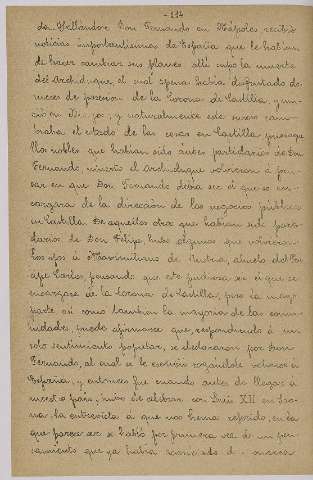 -114-
do. Hallándose Don Fernando en Nápoles recibió
noticias importantísimas de España que le habían
de hacer cambiar sus planes. Allí supo la muerte
del Archiduque, el cual apena había disfrutado de
meses de posesión de la Corona de Castilla, y mu-
rió en y naturalmente este suceso cam-
biaba el estado de las cosas en Castilla puesto que
los nobles que habían sido antes partidarios de Don
Fernando, muerto el Archiduque volvieron á pen-
sar en que Don Fernando debía ser el que se en-
cargara de la dirección de los negocios públicos
en Castilla. De aquellos otros que habían sido parti-
darios de Don Felipe, hubo algunos que volvieron
los ojos á Maximiliano de Austria, abuelo del
Carlos, pensando que este pudiera ser el que se
encargase de la corona de Castilla; pero la mayor
parte así como también la mayoría de las comu-
nidades, puede afirmarse que, respondiendo á un
solo sentimiento popular, se declararon por Don
Fernando, al cual se le escribió rogándole volviese á
España, y entonces fué cuando antes de llegar á
nuestro país, hubo de celebrar con Luis XII en Sao-
na, la entrevista á que nos hemos referido, en la
que parece ser se habló por primera vez de un pen-
samiento que ya había